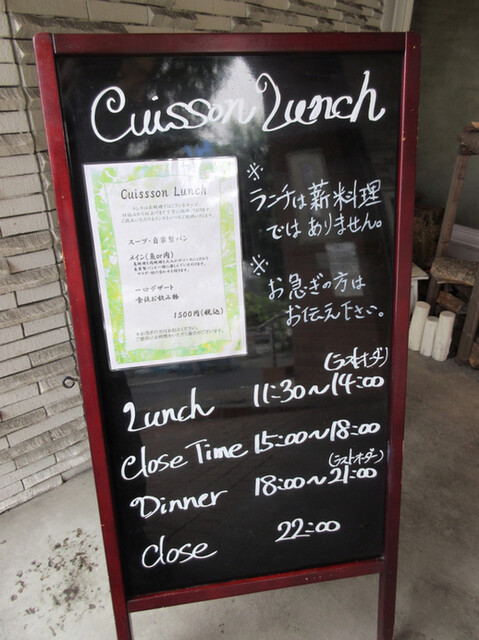 Cuisson Lunch
Cuissson Lunch
スープ・自家製パン
メイン(魚or肉)
一口デザート
食後お飲み物
1500円(税込)
※
ランチは薪料理
ではありません。
※
お急ぎの方は
お伝え下さい。
(ラストオーダー)
Lunch 11:30~14:00
Close Time 15:00~18:00
(ラストオーダー)
Dinner 18:00~21:00
close 22:00